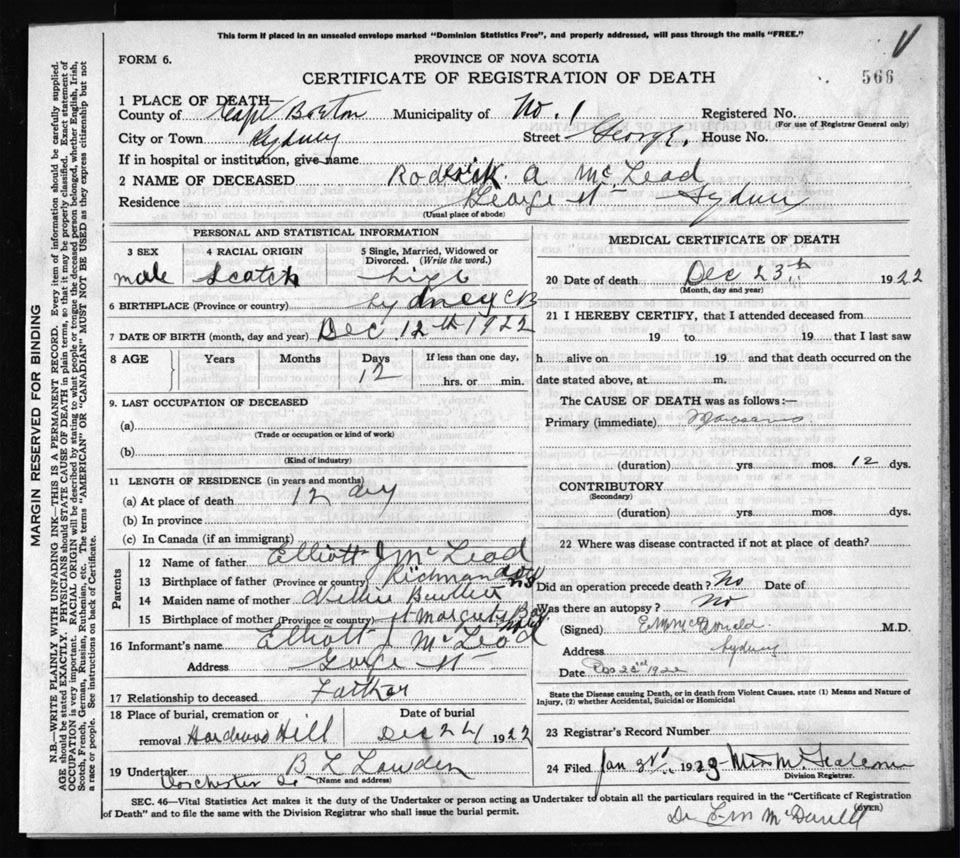 This form if placed in an unsealed envelope marked "Dominion Statistics Free", and properly addressed, will pass through the mails "FREE."
FORM 6.
PROVINCE OF NOVA SCOTIA
CERTIFICATE OF REGISTRATION OF DEATH
566
1 PLACE OF DEATH—
County of Cape Breton Municipality of No. 1 Registered No.
(For use of Registrar General only)
City or Town Sydney Street George. House No.
If in hospital or institution, give name
2 NAME OF DECEASED Roderick A McLeod
Residence George St Sydney
(Usual place of abode)
PERSONAL AND STATISTICAL INFORMATION
3 SEX 4 RACIAL ORIGIN 5 Single, Married, Widowed or Divorced. (Write the word.)
male Scotch
6 BIRTHPLACE (Province or country) Sydney CB
7 DATE OF BIRTH (month, day and year) Dec. 12th 1922
8 AGE Years Months Days If less than one day,
12 hrs. or min.
9. LAST OCCUPATION OF DECEASED
(a)
(Trade or occupation or kind of work)
(b)
(Kind of industry)
11 LENGTH OF RESIDENCE (in years and months)
(a) At place of death 12 dy
(b) In province
(c) In Canada (if an immigrant)
Parents
12 Name of father Elliott J McLeod
13 Birthplace of father (Province or country) Richmond NS
14 Maiden name of mother
15 Birthplace of mother (Province or country) St Margrets Bay
16 Informant's name Elliott J McLeod
Address George St
17 Relationship to deceased Father
18 Place of burial, cremation or removal Hardwood Hill Date of burial Dec 24 1922
19 Undertaker B L Lowden
(Name and address)
Dorchester St
MEDICAL CERTIFICATE OF DEATH
20 Date of death Dec 23th 1922
(Month, day and year)
21 I HEREBY CERTIFY, that I attended deceased from
19 to 19 that I last saw
h alive on 19 and that death occurred on the
date stated above, at m.
The CAUSE OF DEATH was as follows:—
Primary (immediate)
(duration) yrs. mos. 12 dys.
CONTRIBUTORY
(Secondary)
(duration) yrs. mos. dys.
22 Where was disease contracted if not at place of death?
Did an operation precede death? No Date of
Was there an autopsy? No
(Signed) E M McDonald M.D.
Address Sydney
Date Dec 23rd 1922
State the Disease causing Death, or in death from Violent Causes, state (1) Means and Nature of
Injury, (2) whether Accidental, Suicidal or Homicidal
23 Registrar's Record Number
24 Filed Jan 1923
Division Registrar.
SEC. 46—Vital Statistics Act makes it the duty of the Undertaker or person acting as Undertaker to obtain all the particulars required in the "Certificate of Registration
of Death" and to file the same with the Division Registrar who shall issue the burial permit.
(OVER)
MARGIN RESERVED FOR BINDING
N.B.—WRITE PLAINLY WITH UNFADING INK—THIS IS A PERMANENT RECORD. Every item of information should be carefully supplied.
AGE should be stated EXACTLY. PHYSICIANS should STATE CAUSE OF DEATH in plain terms, so that it may be properly classified. Exact statement of
OCCUPATION is very important. RACIAL ORIGIN will be described by stating to what people or tongue the deceased person belonged, whether English, Irish,
Scotch, French, German, Russian, Ruthenian, etc. The terms "AMERICAN" OR "CANADIAN" MUST NOT BE USED as they express citizenship but not
a race or people. See instructions on back of Certificate.